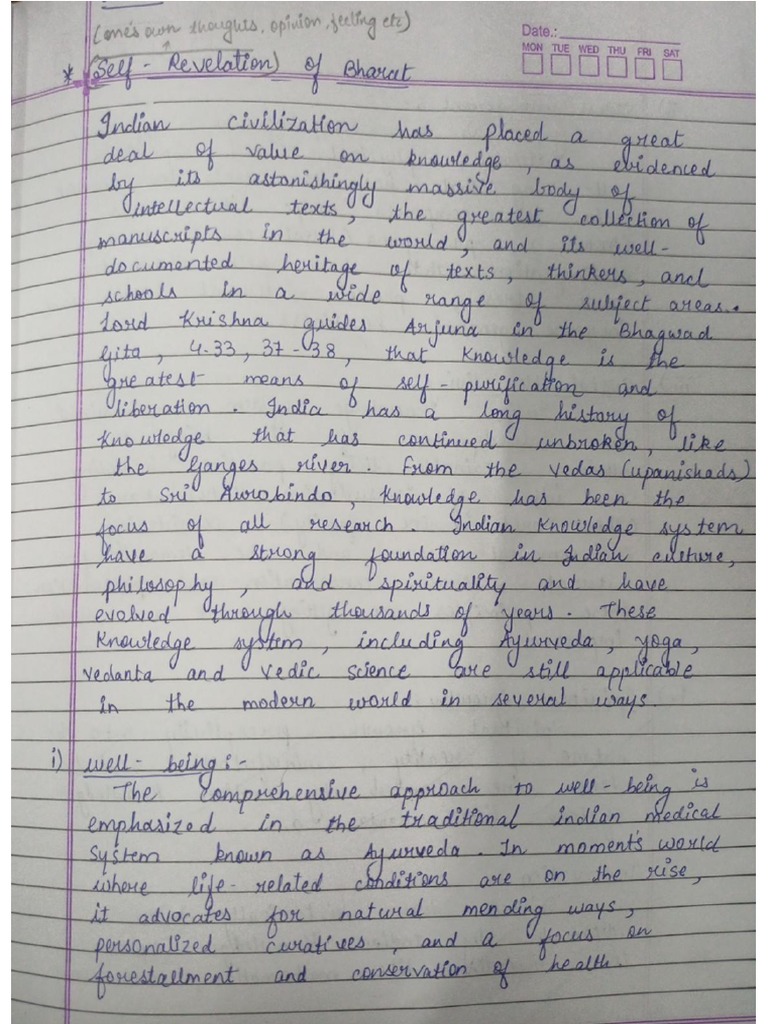 (one's own thoughts, opinion, feeling etc)
Date.:
MON TUE WED THU FRI SAT
* (Self - Revelation) of Bharat
Indian civilization has placed a great
deal of value on knowledge, as evidenced
by its astonishingly massive body of
intellectual texts, the greatest collection of
manuscripts in the world, and its well-
documented heritage of texts, thinkers, and
schools in a wide range of subject areas.
Lord Krishna guides Arjuna in the Bhagwad
Gita, 4.33, 37-38, that knowledge is the
greatest means of self-purification and
liberation. India has a long history of
knowledge that has continued unbroken, like
the Ganges river. From the vedas (upanishads)
to Sri Aurobindo, knowledge has been the
focus of all research. Indian Knowledge system
have a strong foundation in Indian culture,
philosophy, and spirituality and have
evolved through thousands of years. These
knowledge system, including Ayurveda, yoga,
vedanta and vedic science are still applicable
in the modern world in several ways.
i) well-being:-
The comprehensive approach to well-being is
emphasized in the traditional indian medical
system known as Ayurveda. In moment's world
where life-related conditions are on the rise,
it advocates for natural mending ways,
personalized curatives, and a focus on
forestallment and conservation of health.